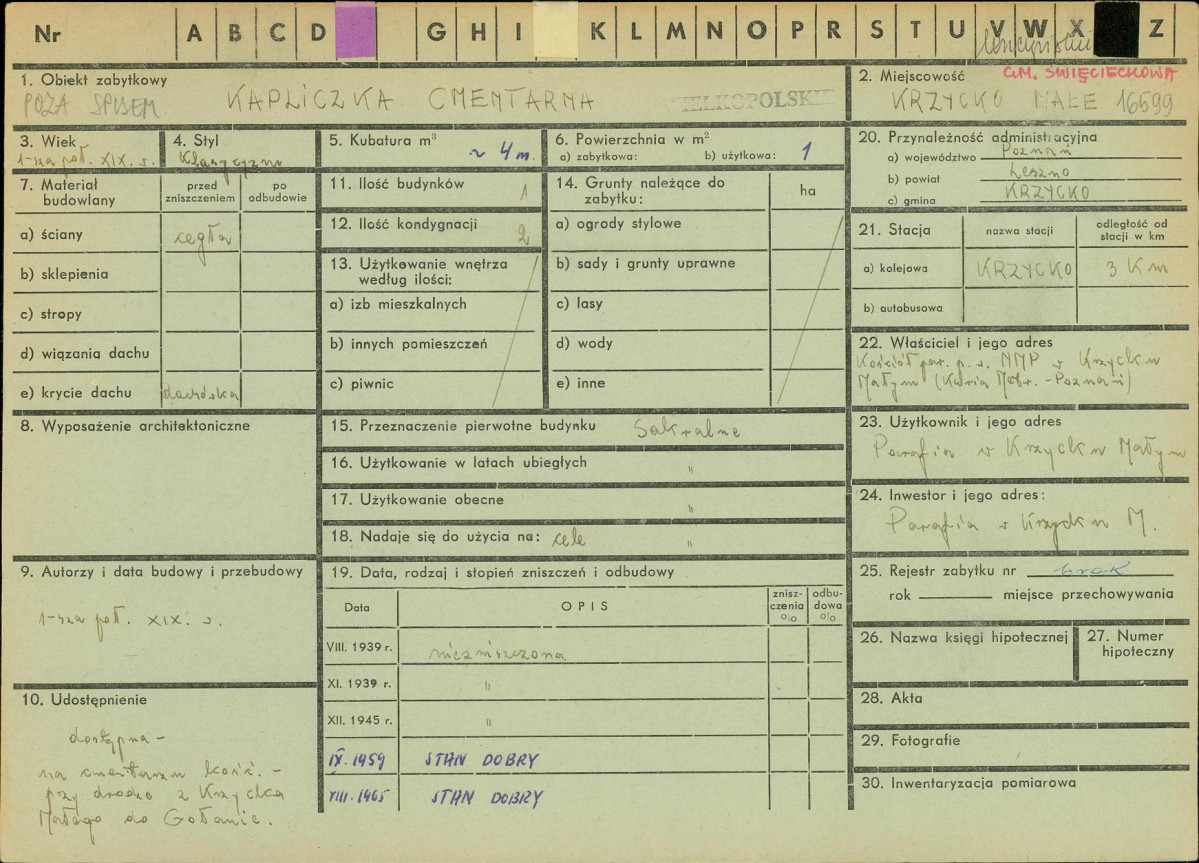 Nr A B C D G H I K L M N O P R S T U V W X Z
1. Obiekt zabytkowy
POZA SPISEM KAPLICZKA CMENTARNA
WIELKOPOLSKIE
2. Miejscowość GM. ŚWIĘCIECHOWA
KRZYCKO MAŁE 16599
3. Wiek
1-sza poł. XIX. w.
4. Styl
Klasycyzm
5. Kubatura m³
~ 4 m.
6. Powierzchnia w m²
a) zabytkowa: b) użytkowa: 1
7. Materiał budowlany
przed zniszczeniem
po odbudowie
a) ściany cegła
b) sklepienia
c) stropy
d) wiązania dachu
e) krycie dachu dachówka
8. Wyposażenie architektoniczne
9. Autorzy i data budowy i przebudowy
1-sza poł. XIX. w.
10. Udostępnienie
dostępna -
na cmentarzu kość. -
przy drodze z Krzycka
Małego do Gołanic.
11. Ilość budynków 1
12. Ilość kondygnacji 2
13. Użytkowanie wnętrza
według ilości:
a) izb mieszkalnych
b) innych pomieszczeń
c) piwnic
14. Grunty należące do
zabytku: ha
a) ogrody stylowe
b) sady i grunty uprawne
c) lasy
d) wody
e) inne
15. Przeznaczenie pierwotne budynku Sakralne
16. Użytkowanie w latach ubiegłych "
17. Użytkowanie obecne "
18. Nadaje się do użycia na: cele "
19. Data, rodzaj i stopień zniszczeń i odbudowy
Data OPIS znisz-czenia % odbu-dowa %
VIII. 1939 r. niezniszczona
XI. 1939 r. "
XII. 1945 r. "
IX. 1959 STAN DOBRY
VIII. 1965 STAN DOBRY
20. Przynależność administracyjna
a) województwo Poznań
b) powiat Leszno
c) gmina KRZYCKO
21. Stacja
nazwa stacji
odległość od
stacji w km
a) kolejowa KRZYCKO 3 Km
b) autobusowa
22. Właściciel i jego adres
Kościół par. p. w. NMP w Krzycku
Małym (Kuria Metr. - Poznań)
23. Użytkownik i jego adres
Parafia w Krzycku Małym
24. Inwestor i jego adres:
Parafia w Krzycku M.
25. Rejestr zabytku nr brak
rok miejsce przechowywania
26. Nazwa księgi hipotecznej
27. Numer
hipoteczny
28. Akta
29. Fotografie
30. Inwentaryzacja pomiarowa